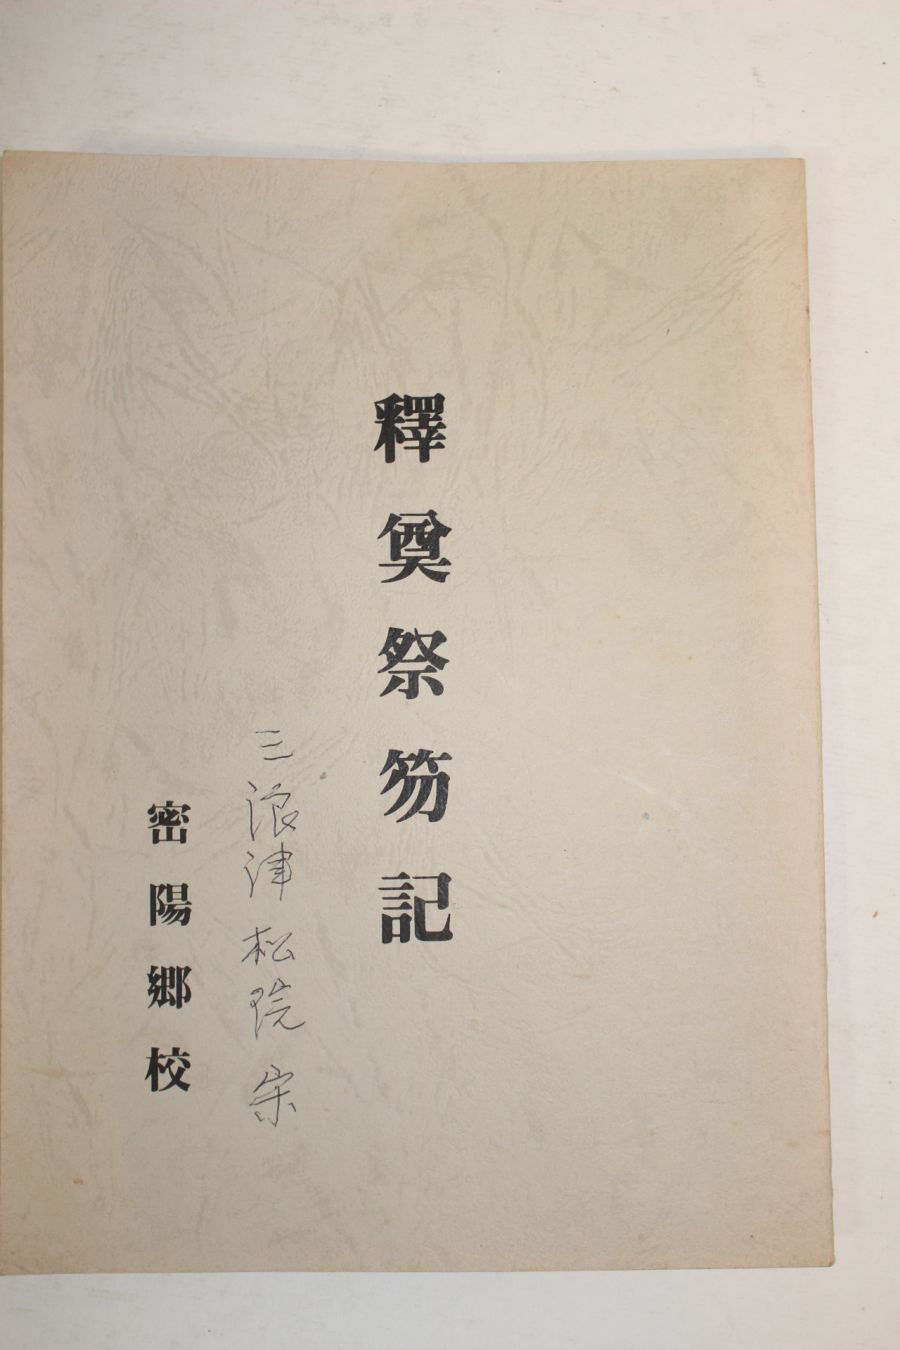 釋奠祭笏記
三浪津 松院 宋
密陽鄉校